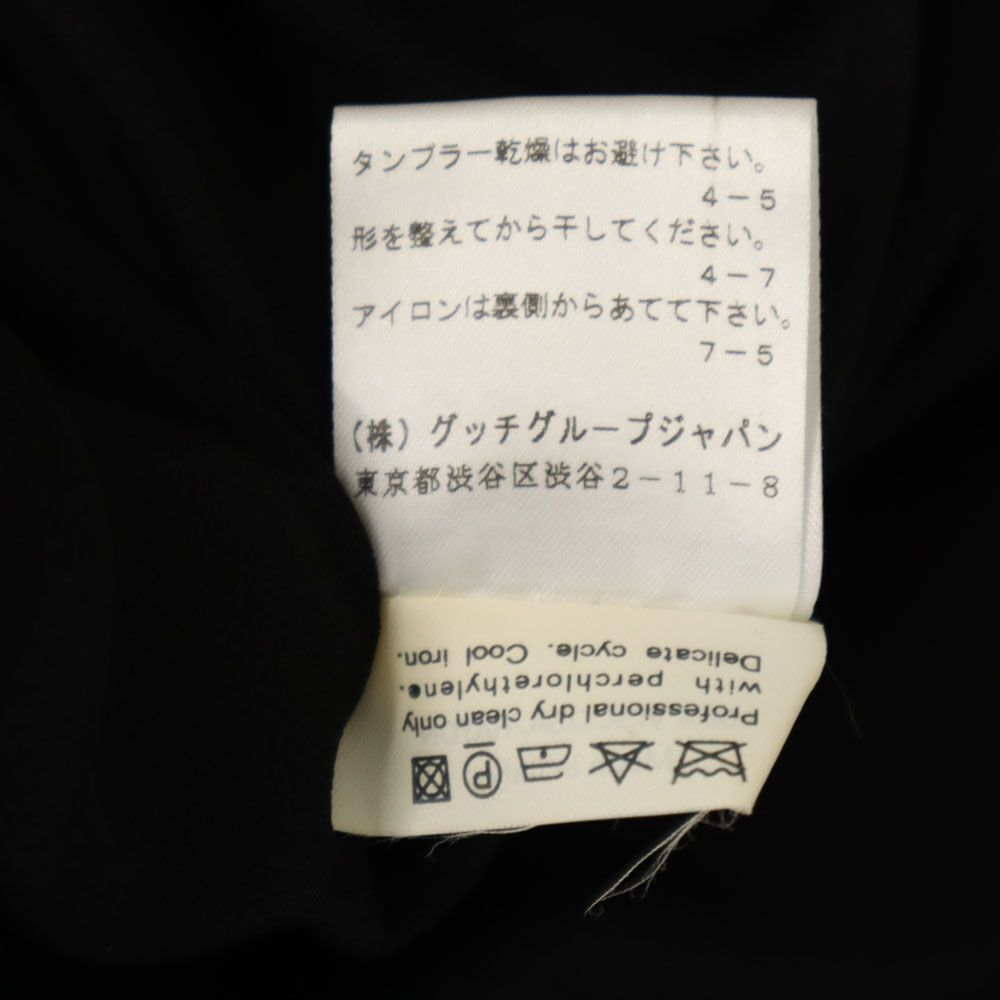 タンブラー乾燥はお避け下さい。
4-5
形を整えてから干してください。
4-7
アイロンは裏側からあてて下さい。
7-5
(株)グッチグループジャパン
東京都渋谷区渋谷2-11-8
P
Professional dry clean only
with perchlorethylene.
Delicate cycle. Cool iron.